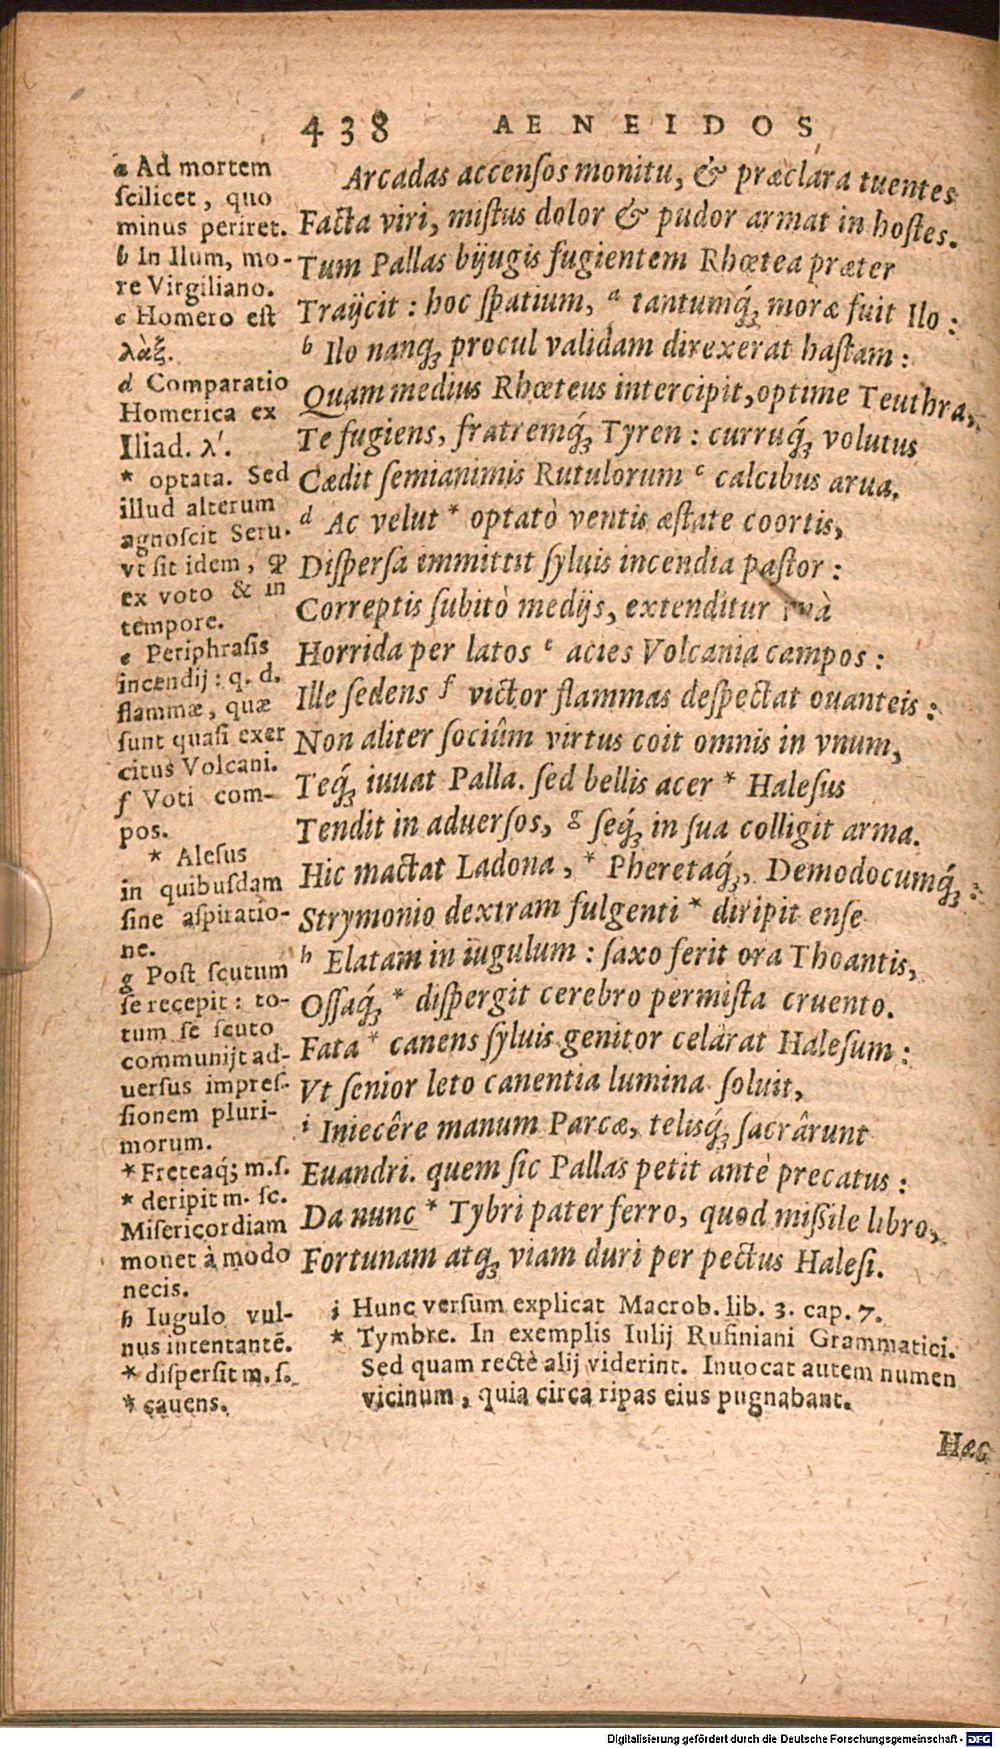 438 AENEIDOS
Arcadas accensos monitu, & præclara tuentes
Facta viri, mistus dolor & pudor armat in hostes.
Tum Pallas bijugis fugientem Rhœtea præter
Traijcit : hoc spatium, a tantumq́ꝫ moræ fuit Ilo :
b Ilo nanqꝫ procul validam direxerat hastam :
Quam medius Rhœteus intercipit, optime Teuthra,
Te fugiens, fratremq́ꝫ Tyren : curruq́ꝫ volutus
Cædit semianimis Rutulorum c calcibus arua.
d Ac velut * optatò ventis æstate coortis,
Dispersa immittit syluis incendia pastor :
Correptis subitò medijs, extenditur vnà
Horrida per latos e acies Volcania campos :
Ille sedens f victor flammas despectat ouanteis :
Non aliter sociûm virtus coit omnis in vnum,
Teq́ꝫ iuuat Palla. sed bellis acer * Halesus
Tendit in aduersos, g seq́ꝫ in sua colligit arma.
Hic mactat Ladona, * Pheretaq́ꝫ, Demodocumq́ꝫ :
Strymonio dextram fulgenti * diripit ense
h Elatam in iugulum : saxo ferit ora Thoantis,
Ossaq́ꝫ * dispergit cerebro permista cruento.
Fata * canens syluis genitor celârat Halesum :
Vt senior leto canentia lumina soluit,
i Iniecêre manum Parcæ, telisq́ꝫ sacrârunt
Euandri. quem sic Pallas petit antè precatus :
Da nunc * Tybri pater ferro, quod missile libro,
Fortunam atqꝫ viam duri per pectus Halesi.
a Ad mortem
scilicet, quo
minus periret.
b In Ilum, mo-
re Virgiliano.
c Homero est
λὰξ.
d Comparatio
Homerica ex
Iliad. λ'.
* optata. Sed
illud alterum
agnoscit Seru.
vt sit idem, ꝙ
ex voto & in
tempore.
e Periphrasis
incendij : q. d.
flammæ, quæ
sunt quasi exer
citus Volcani.
f Voti com-
pos.
* Alesus
in quibusdam
sine aspiratio-
ne.
g Post scutum
se recepit : to-
tum se scuto
communijt ad-
uersus impres-
sionem pluri-
morum.
* Freteaq́ꝫ m.s.
* deripit m. sc.
Misericordiam
monet à modo
necis.
h Iugulo vul-
nus intentantẽ.
* dispersit m. s.
* cauens.
i Hunc versum explicat Macrob. lib. 3. cap. 7.
* Tymbre. In exemplis Iulij Rufiniani Grammatici.
Sed quam rectè alij viderint. Inuocat autem numen
vicinum, quia circa ripas eius pugnabant.
Hæc
Digitalisierung gefördert durch die Deutsche Forschungsgemeinschaft - DFG